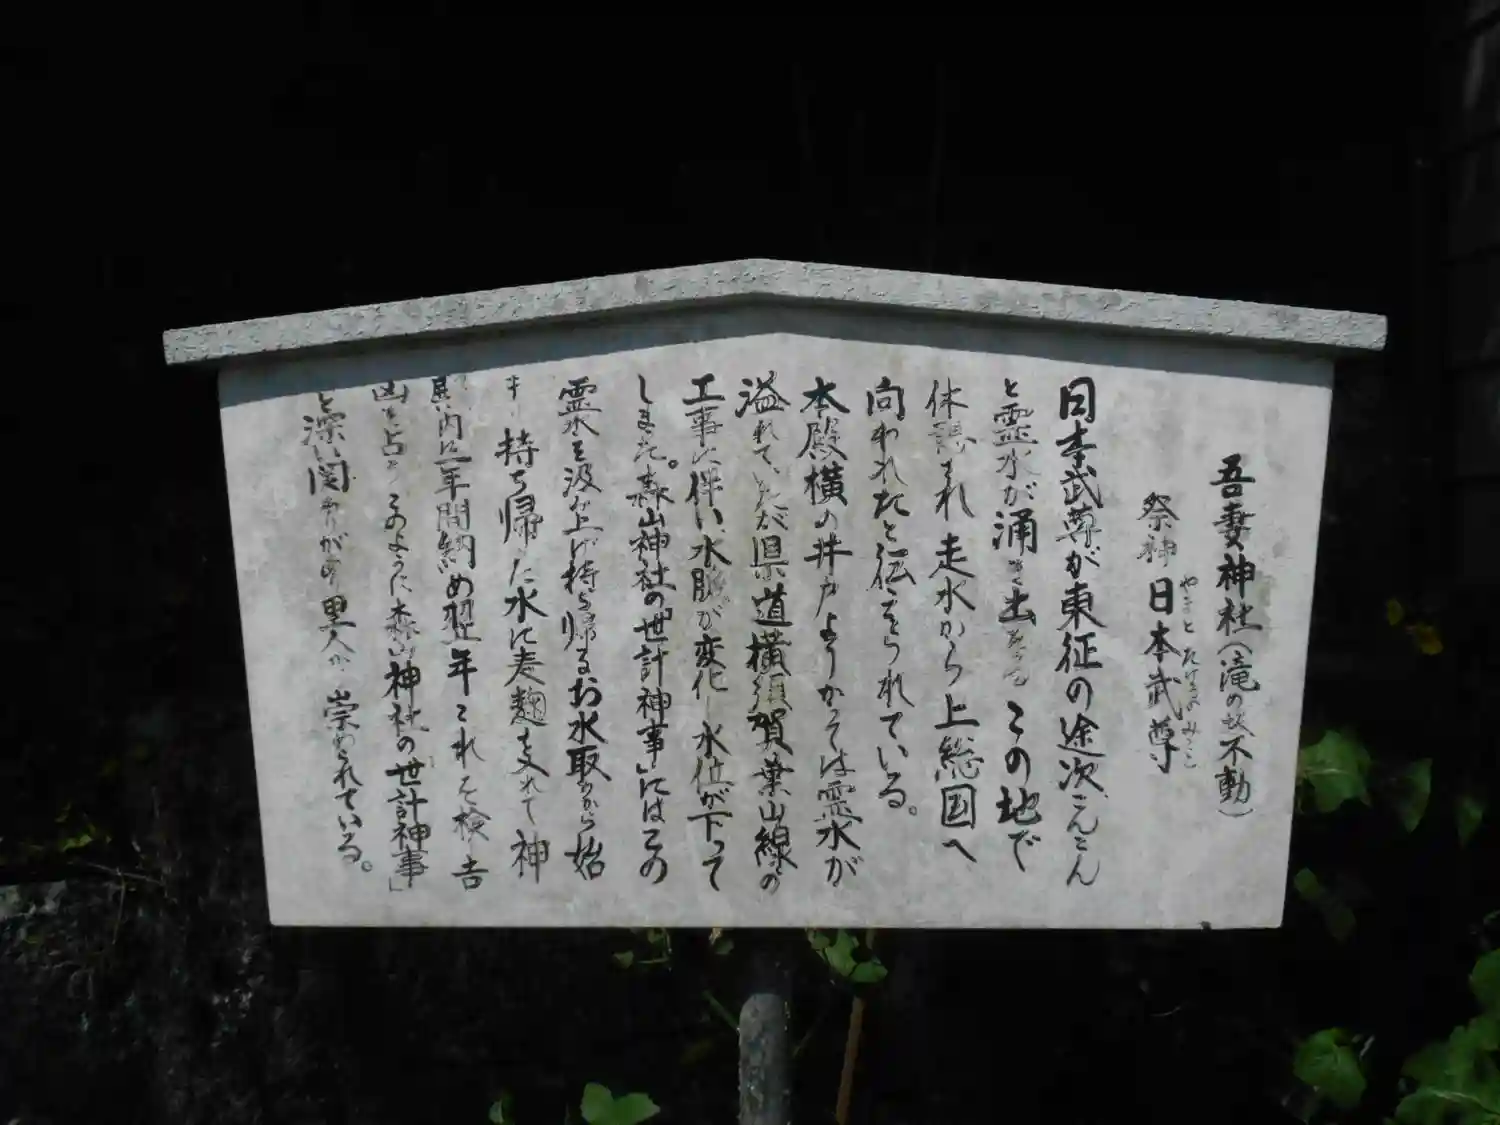 吾妻神社(滝の坂不動)
祭神 日本武尊
やまとたけるのみこと
日本武尊が東征の途次、こんこん
と霊水が涌き出るこの地で
休憩され走水から上総国へ
向われたと伝えられている。
本殿横の井戸よりかつては霊水が
溢れていたが県道横須賀葉山線の
工事に伴い、水脈が変化し水位が下って
しまった。森山神社の世計神事」にはこの
霊水を汲み上げ持ち帰るお水取りから始
まり持ち帰った水に麦麹を入れて神
殿内に一年間納め翌年これを検し吉
凶を占う このように森山神社の「世計神事」
と深い関わりがあり里人が崇められている。